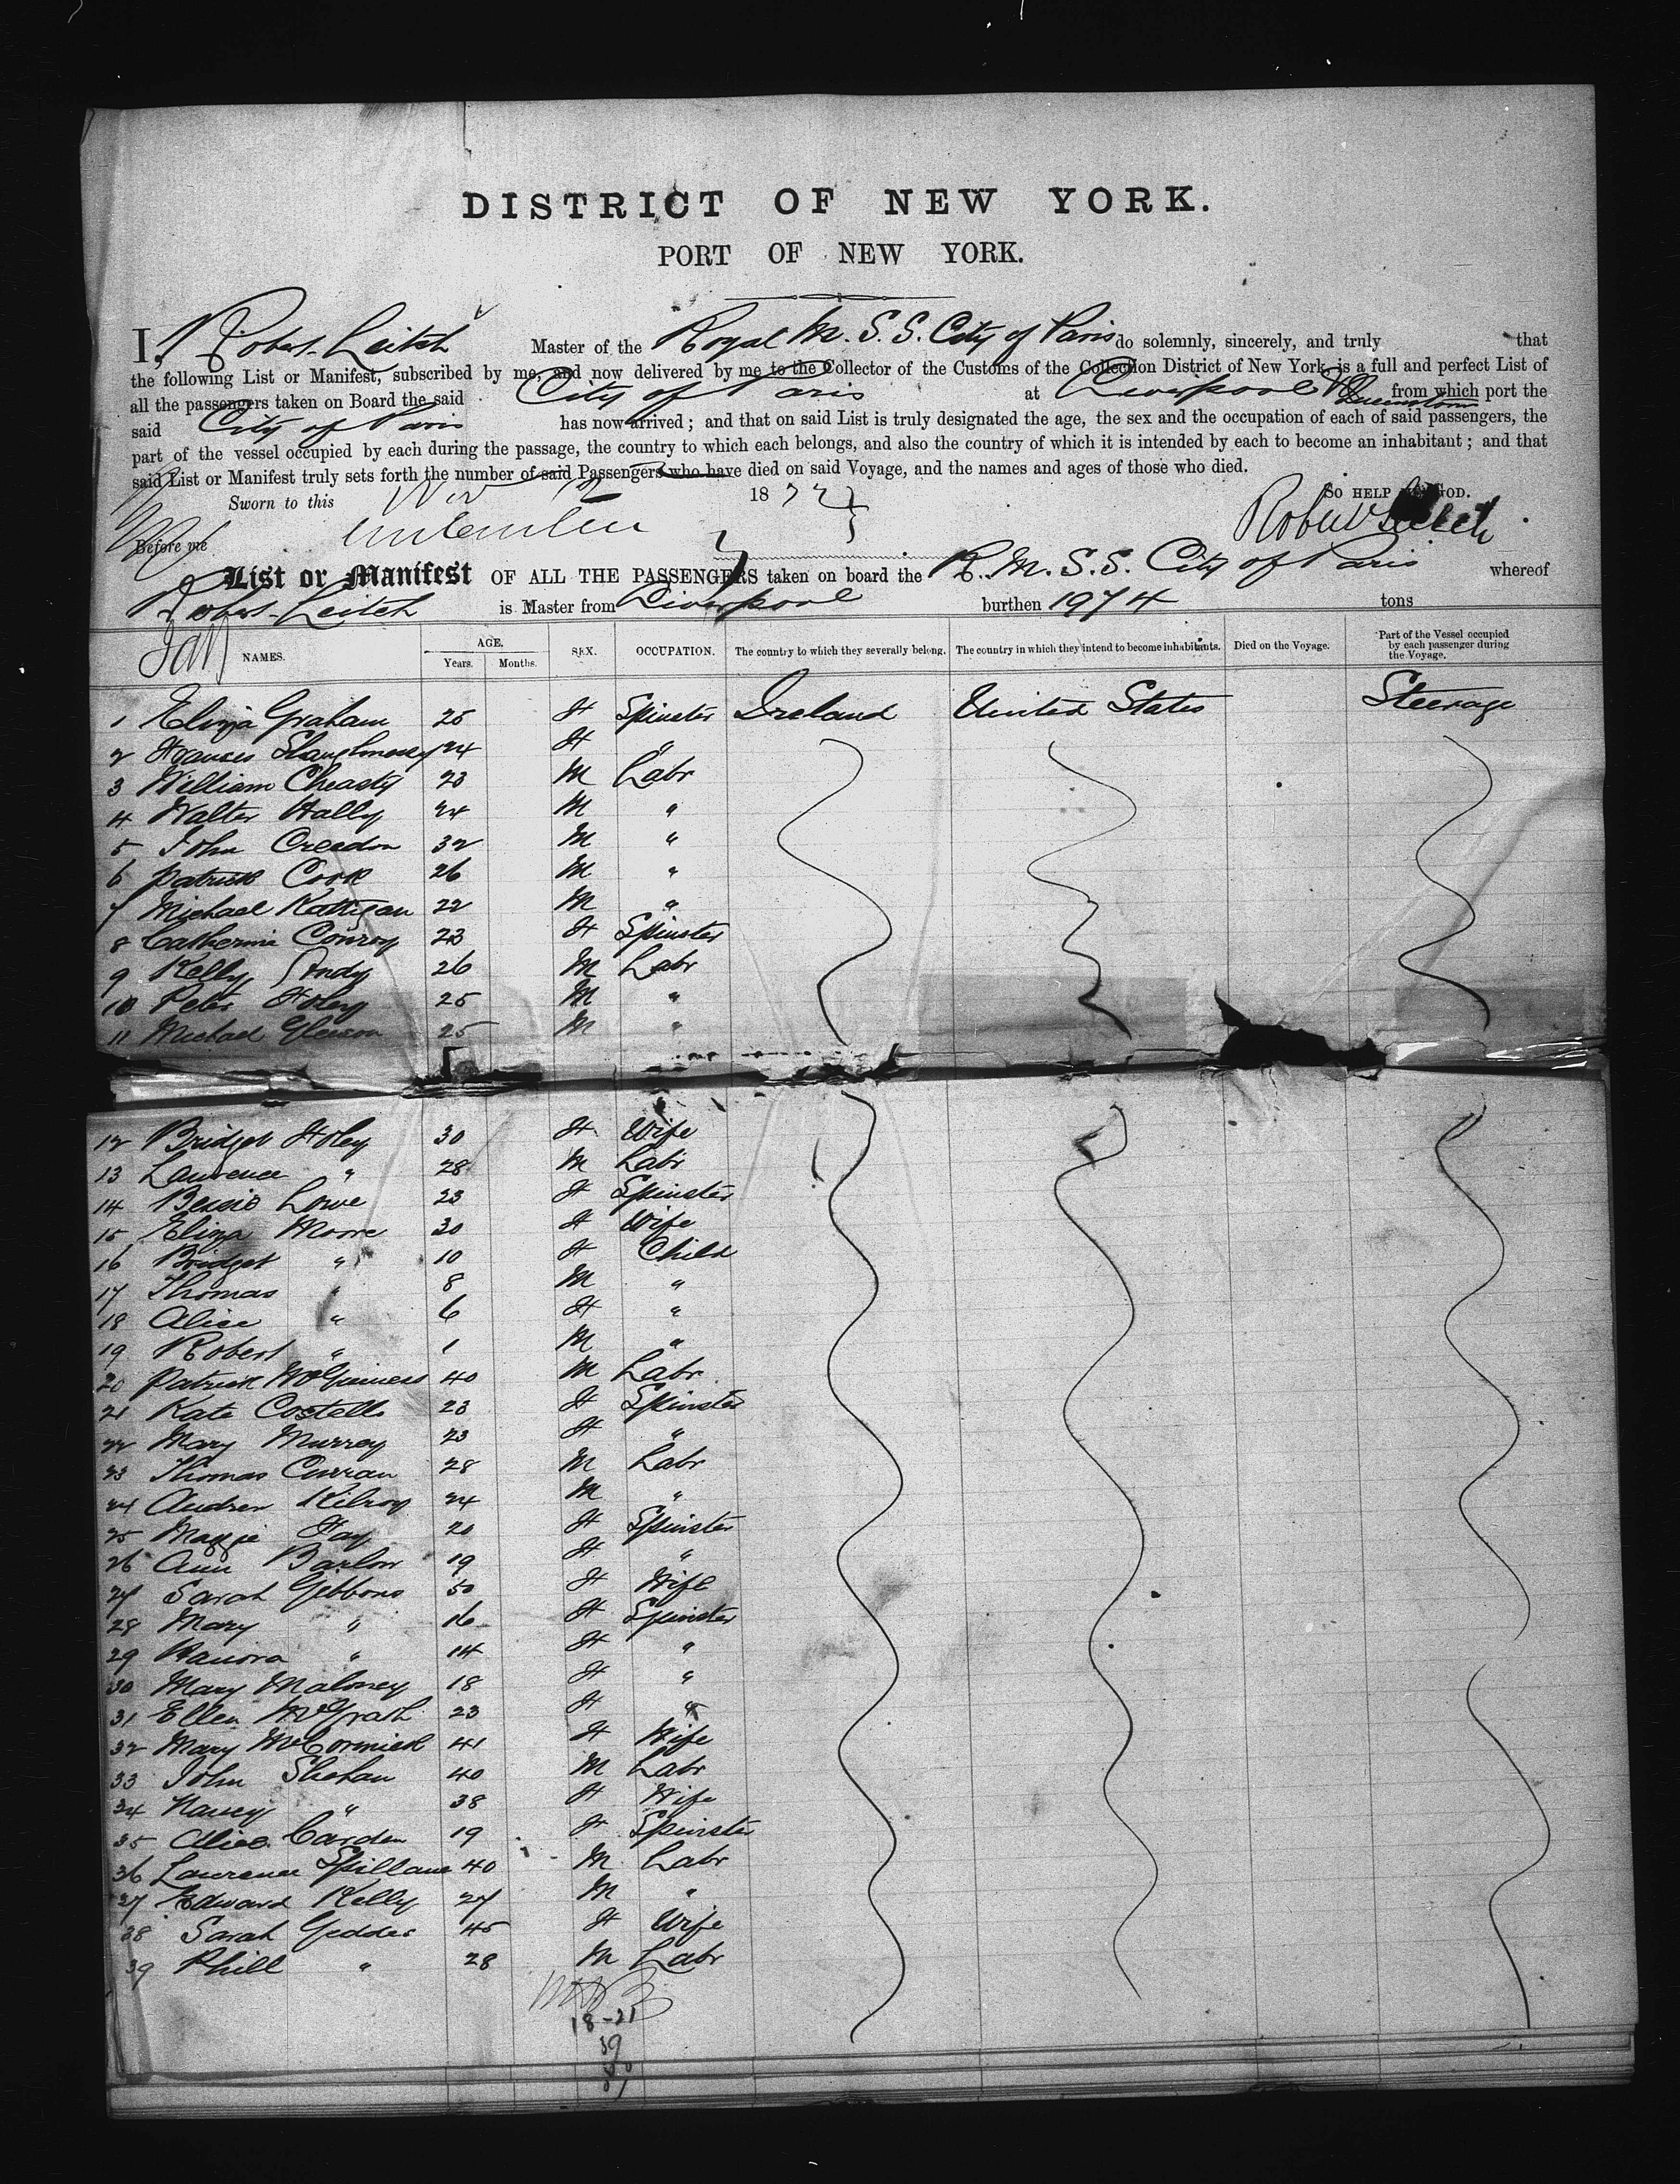 DISTRICT OF NEW YORK.
PORT OF NEW YORK.
I, Robert Leitch Master of the Royal M. S. S. City of Paris do solemnly, sincerely, and truly that
the following List or Manifest, subscribed by me, and now delivered by me to the Collector of the Customs of the Collection District of New York, is a full and perfect List of
all the passengers taken on Board the said City of Paris at Liverpool & Queenstown from which port the
said City of Paris has now arrived; and that on said List is truly designated the age, the sex and the occupation of each of said passengers, the
part of the vessel occupied by each during the passage, the country to which each belongs, and also the country of which it is intended by each to become an inhabitant; and that
said List or Manifest truly sets forth the number of said Passengers who have died on said Voyage, and the names and ages of those who died.
Sworn to this Nov 18 So HELP GOD.
Robert Leitch
Before me
List or Manifest OF ALL THE PASSENGERS taken on board the R. M. S. S. City of Paris whereof
Robert Leitch is Master from Liverpool burthen 1974 tons
NAMES. AGE. Years. Months. SEX. OCCUPATION. The country to which they severally belong. The country in which they intend to become inhabitants. Died on the Voyage. Part of the Vessel occupied by each passenger during the Voyage.
1 Eliza Graham 25 F Spinster Ireland United States Steerage
2 Frances 24 F "
3 William Cheasty 23 M Labr
4 Walter Hally 24 M "
5 John Creedon 32 M "
6 Patrick Cook 26 M "
7 Michael Rattigan 22 M "
8 Catherine Conroy 23 F Spinster
9 Kelly Andy 26 M Labr
10 Peter Foley 25 M "
11 Michael Gleeson 25 M "
12 Bridget Foley 30 F Wife
13 Lawrence " 28 M Labr
14 Bessie Lowe 23 F Spinster
15 Eliza Moore 30 F Wife
16 Bridget " 10 F Child
17 Thomas " 8 M "
18 Alice " 6 F "
19 Robert " 1 M "
20 Patrick McGuiness 40 M Labr
21 Kate Costello 23 F Spinster
22 Mary Murrey 23 F "
23 Thomas Curran 28 M Labr
24 Andrew Kilroy 24 M "
25 Maggie Fay 20 F Spinster
26 Ann Barlow 19 F "
27 Sarah Gibbons 50 F Wife
28 Mary " 16 F Spinster
29 Hanora " 14 F "
30 Mary Maloney 18 F "
31 Ellen McGrath 23 F "
32 Mary McCormick 41 F Wife
33 John Shehan 40 M Labr
34 Nancy " 38 F Wife
35 Alice Carden 19 F Spinster
36 Lawrence Spillane 40 M Labr
37 Edward Kelly 27 M "
38 Sarah Geddes 45 F Wife
39 Phill " 28 M Labr
18-21
39